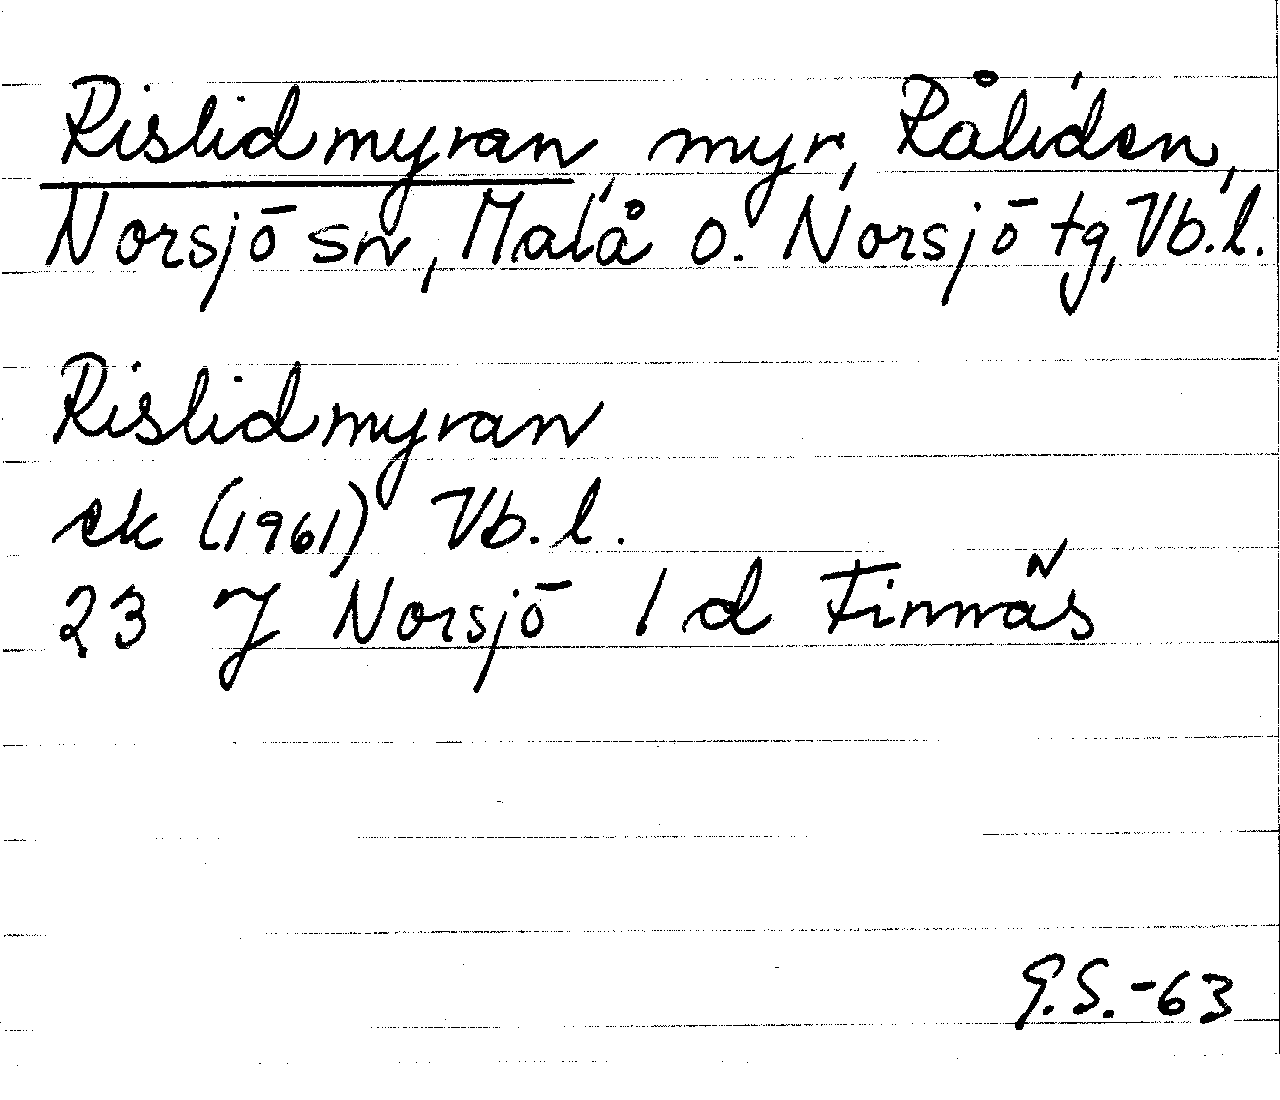 Rislidmyran, myr, Råliden,
Norsjö sn, Malå o. Norsjö tg, Vb.l.
Rislidmyran
ek (1961) Vb.l.
23 J Norsjö 1 d Finnäs
G.S.-63